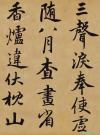 三聲淚奉使虛
隨八月查畫省
香爐違伏枕山